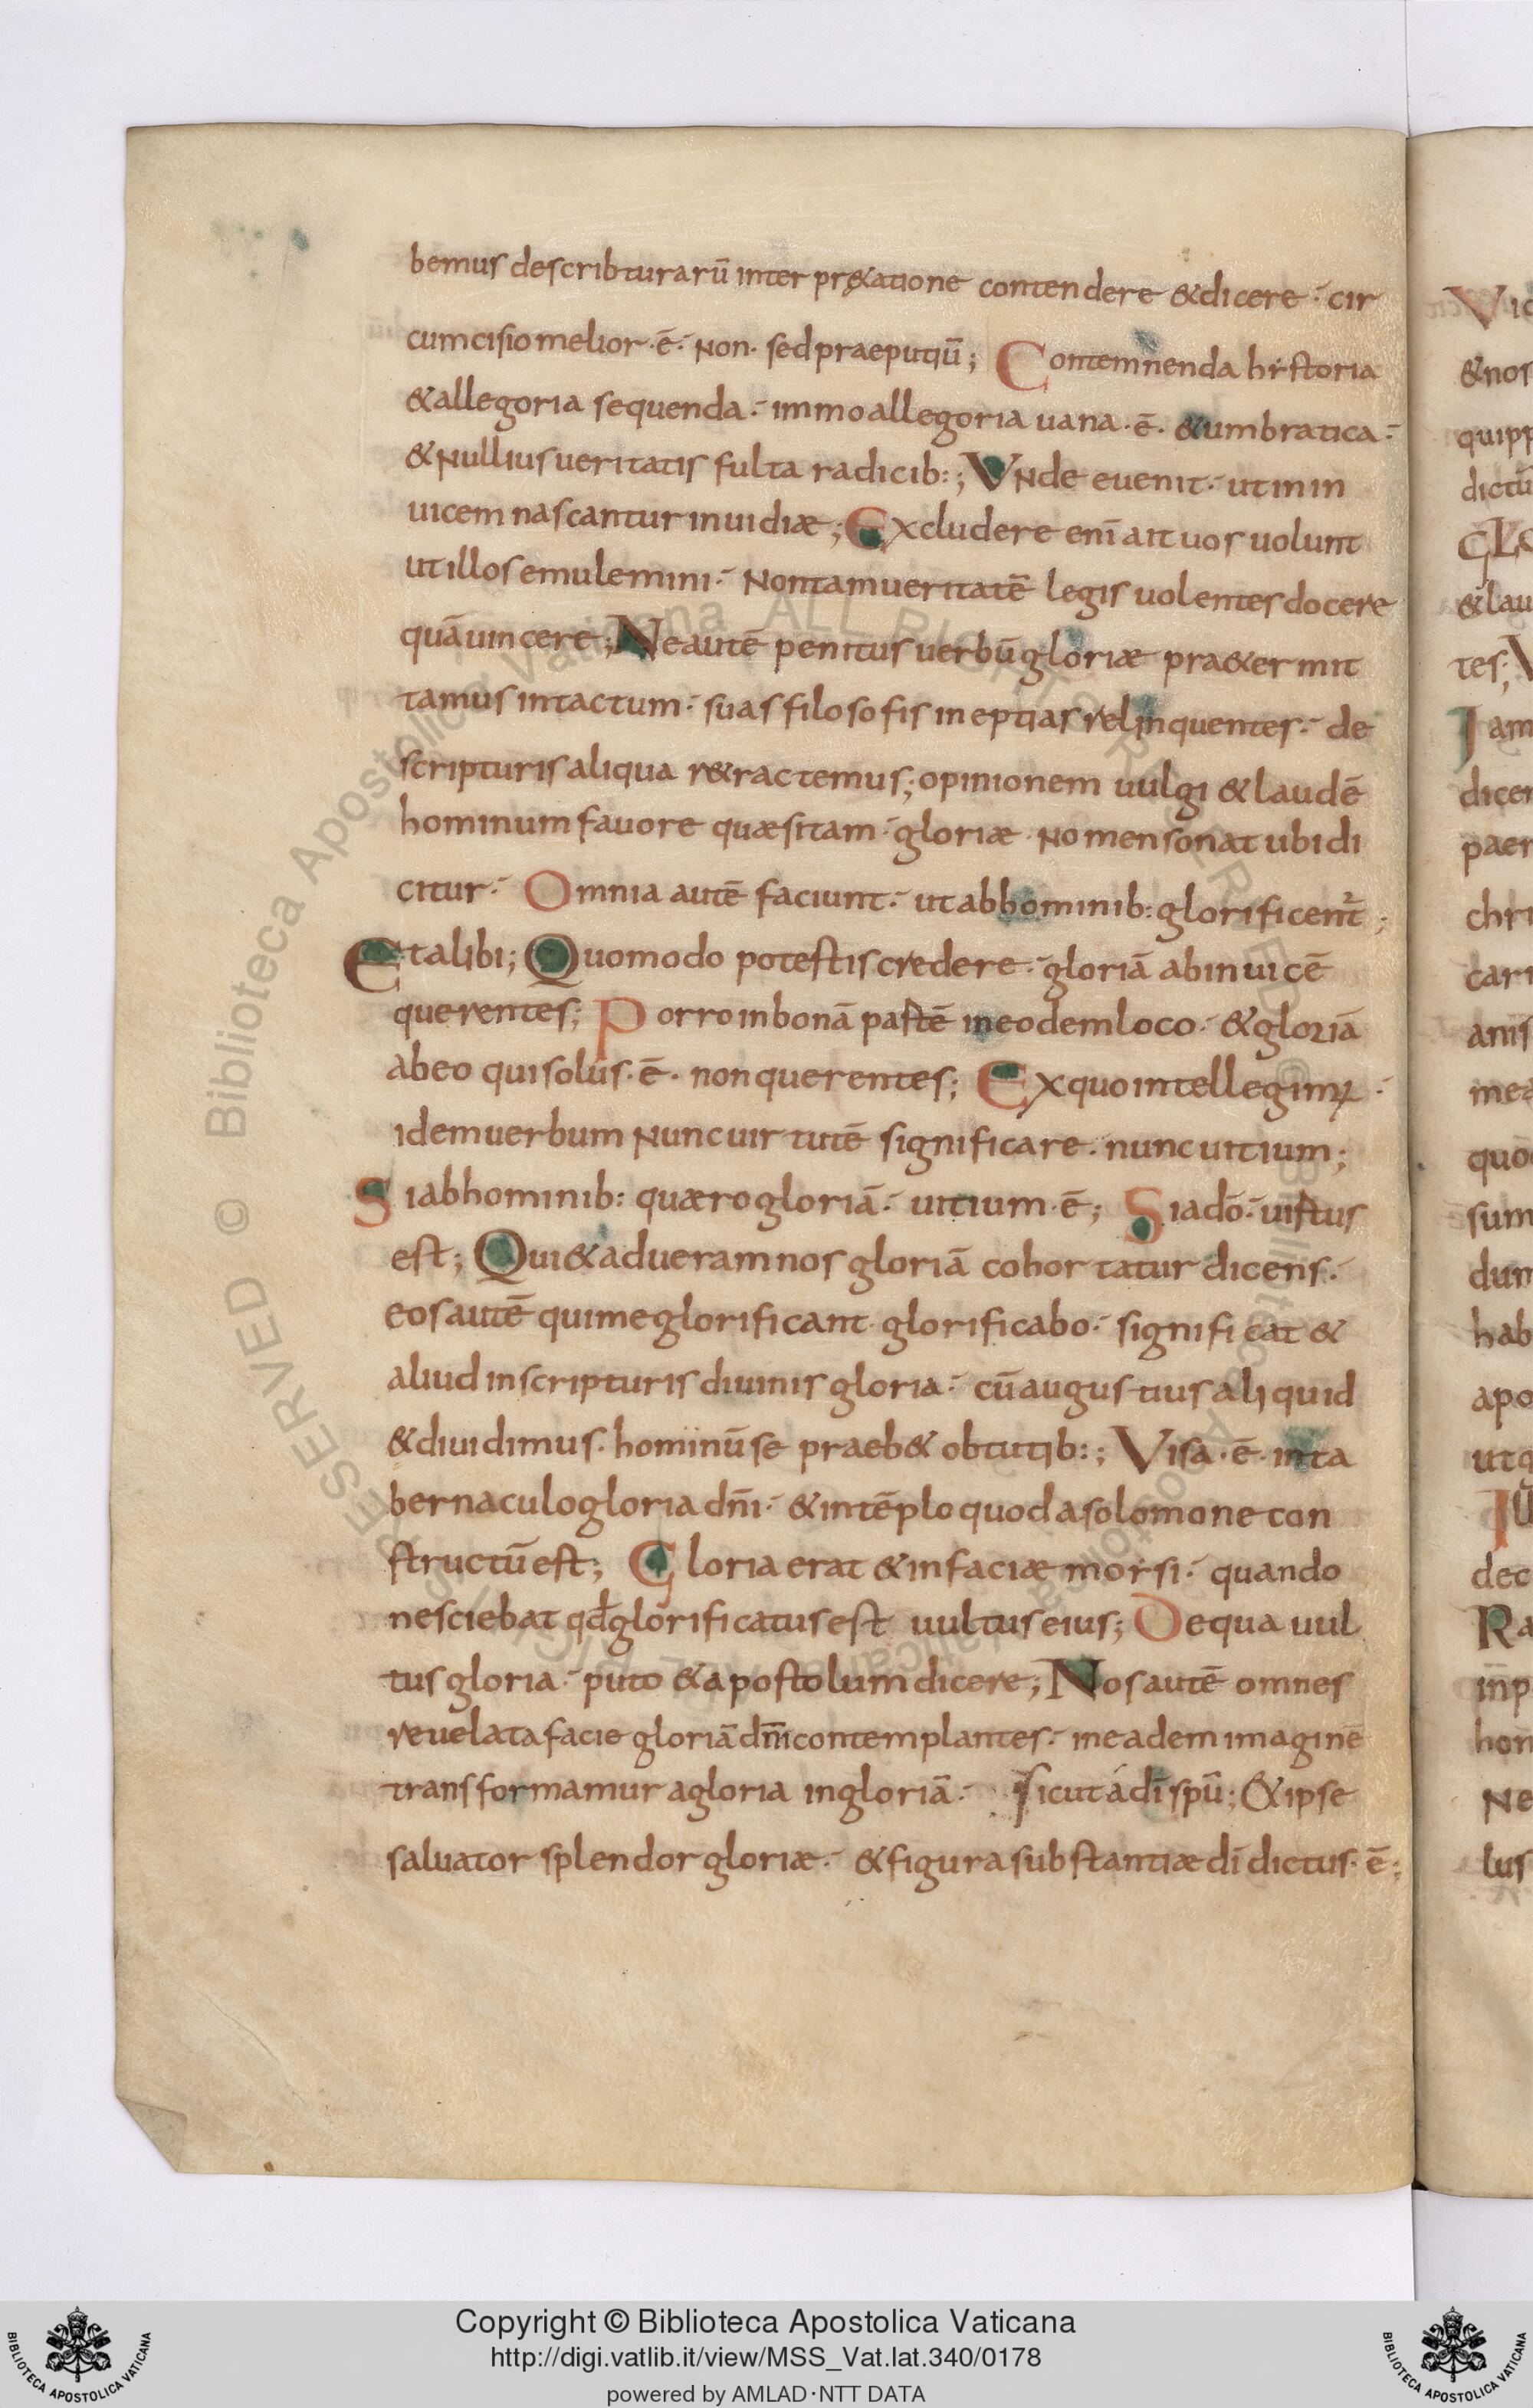 bemus describturarū inter pr&atione contendere & dicere · cir
cumcisio melior · ē · Non · sed praeputiū; Contemnenda historia
& allegoria sequenda · immo allegoria uana · ē · & umbratica ·
& nullius ueritatis fulta radicib:; Vnde euenit · ut in in
uicem nascantur inuidiæ; Excludere enī ait uos uolunt
ut illos emulemini · Non tam ueritatē legis uolentes docere
quā uincere; Ne autē penitus uerbū gloriæ pra&ermit
tamus intactum · suas filosofis ineptias relinquentes · de
scripturis aliqua r&ractemus; opinionem uulgi & laudē
hominum fauore quæsitam · gloriæ · nomen sonat ubi di
citur · Omnia autē faciunt · ut ab hominib: glorificent̄;
Et alibi; Quomodo potestis credere · gloriā ab inuicē
querentes; Porro in bonā partē in eodem loco · & gloriā
ab eo qui solus · ē · non querentes; Ex quo intellegimꝰ ·
idem uerbum nunc uirtutē significare · nunc uitium;
Si ab hominib: quæro gloriā · uitium · ē; Si a dō · uirtus
est; Qui & ad ueram nos gloriā cohortatur dicens ·
eos autē qui me glorificant glorificabo · significat &
aliud in scripturis diuinis gloria · cū augustius aliquid
& diuidimus · hominū se praeb& obtutib:; Visa · ē · in ta
bernaculo gloria dn̄i · & in tēplo quod a solomone con
structū est; Gloria erat & in faciæ morsi · quando
nesciebat qđ glorificatus est uultus eius; De qua uul
tus gloria · puto & apostolum dicere; Nos autē omnes
reuelata facie gloriā dn̄i contemplantes · in eadem imaginē
transformamur a gloria in gloriā · sicut a dī spū; & ipse
saluator splendor gloriæ · & figura substantiæ dī dictus · ē;
Copyright © Biblioteca Apostolica Vaticana
http://digi.vatlib.it/view/MSS_Vat.lat.340/0178
powered by AMLAD·NTT DATA